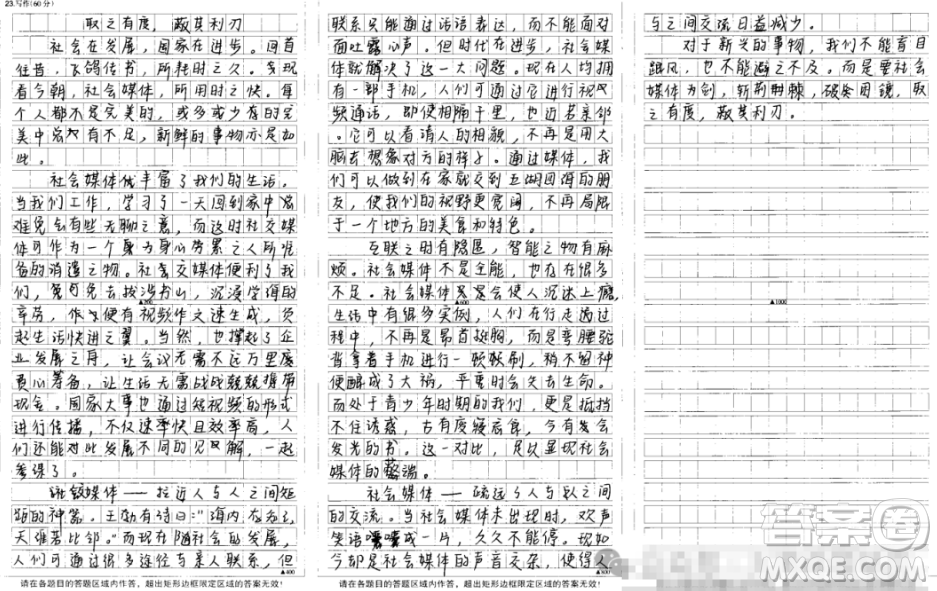 23.写作(60分)
取之有度，敲其利刃
社会在发展，国家在进步。回首
往昔，飞鸽传书，所耗时之久。
看今朝，社会媒体，所用时之快。每
个人都不是完美的，或多或少有的完
美中总有不足，新鲜的事物亦是如
此。
社会媒体丰富了我们的生活。
当我们工作，学习了一天回到家中
难免会有些无聊之意，而这时社交媒
体可作为一个身为身心劳累之人所
备的消遣之物。社会交媒体便利了我
们，免去找书山，沉浸学海的
辛劳，便有视频作文速生成，
起生活快进之翼。当然，也撑起了企
业发展之舟，让会议无需不远万里
费心筹备，让生活无需战战兢兢携带
现金。国家大事也通过短视频的形式
进行传播，不仅速率快且效率高，人
们还能对此发展不同的见解，一起
参谋了。
媒体——拉近人与人之间距
离的神器。王勃有诗曰：“海内存知己，
天涯若比邻。”而现在随社会的发展，
人们可通过很多途径与亲人联系，但
联系只能通过话语表达，而不能面对
面吐露心声。但时代在进步，社会媒
体就解决了这一大问题。现在人均拥
有一部手机，人们可通过它进行视
频通话，即使相隔千里，也近若亲邻
。它可以看清人的相貌，不再是用大
脑去想象对方的样子。通过媒体，我
们可以做到在家就交到五湖四海的朋
友，使我们的视野更宽阔，不再局限
于一个地方的美食和特色。
互联之时有隐匿，智能之物有麻
烦。社会媒体不是全能，也存在很多
不足。社会媒体总是会使人沉迷上瘾，
生活中有很多实例，人们在行走过
程中，不再是昂首挺胸，而是弯腰驼
背拿着手机进行一顿顿刷，稍不留神
便酿成了大祸，严重时会失去生命。
而处于青少年时期的我们，更是抵挡
不住诱惑，古有废寝忘食，今有发会
发光的书。这一对比，足以显现社会
媒体的弊端。
社会媒体——疏远了人与人之间
的交流。当社会媒体未出现时，欢声
笑语嘿嘿成一片，久久不能停。现如
今却是社会媒体的声音交杂，使得人
与之间交流日益减少。
对于新兴的事物，我们不能盲目
跟风，也不能避之不及。而是要社会
媒体为剑，斩荆棘，破茧困镜，取
之有度，敲其利刃。
▲200
▲400
▲600
▲800
▲1000
请在各题目的答题区域内作答，超出矩形边框限定区域的答案无效！
请在各题目的答题区域内作答，超出矩形边框限定区域的答案无效！
答案圈
MXQE.COM